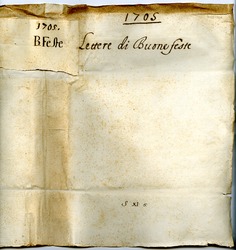 1705
1705.
B. Feste
Lettere di Buone feste